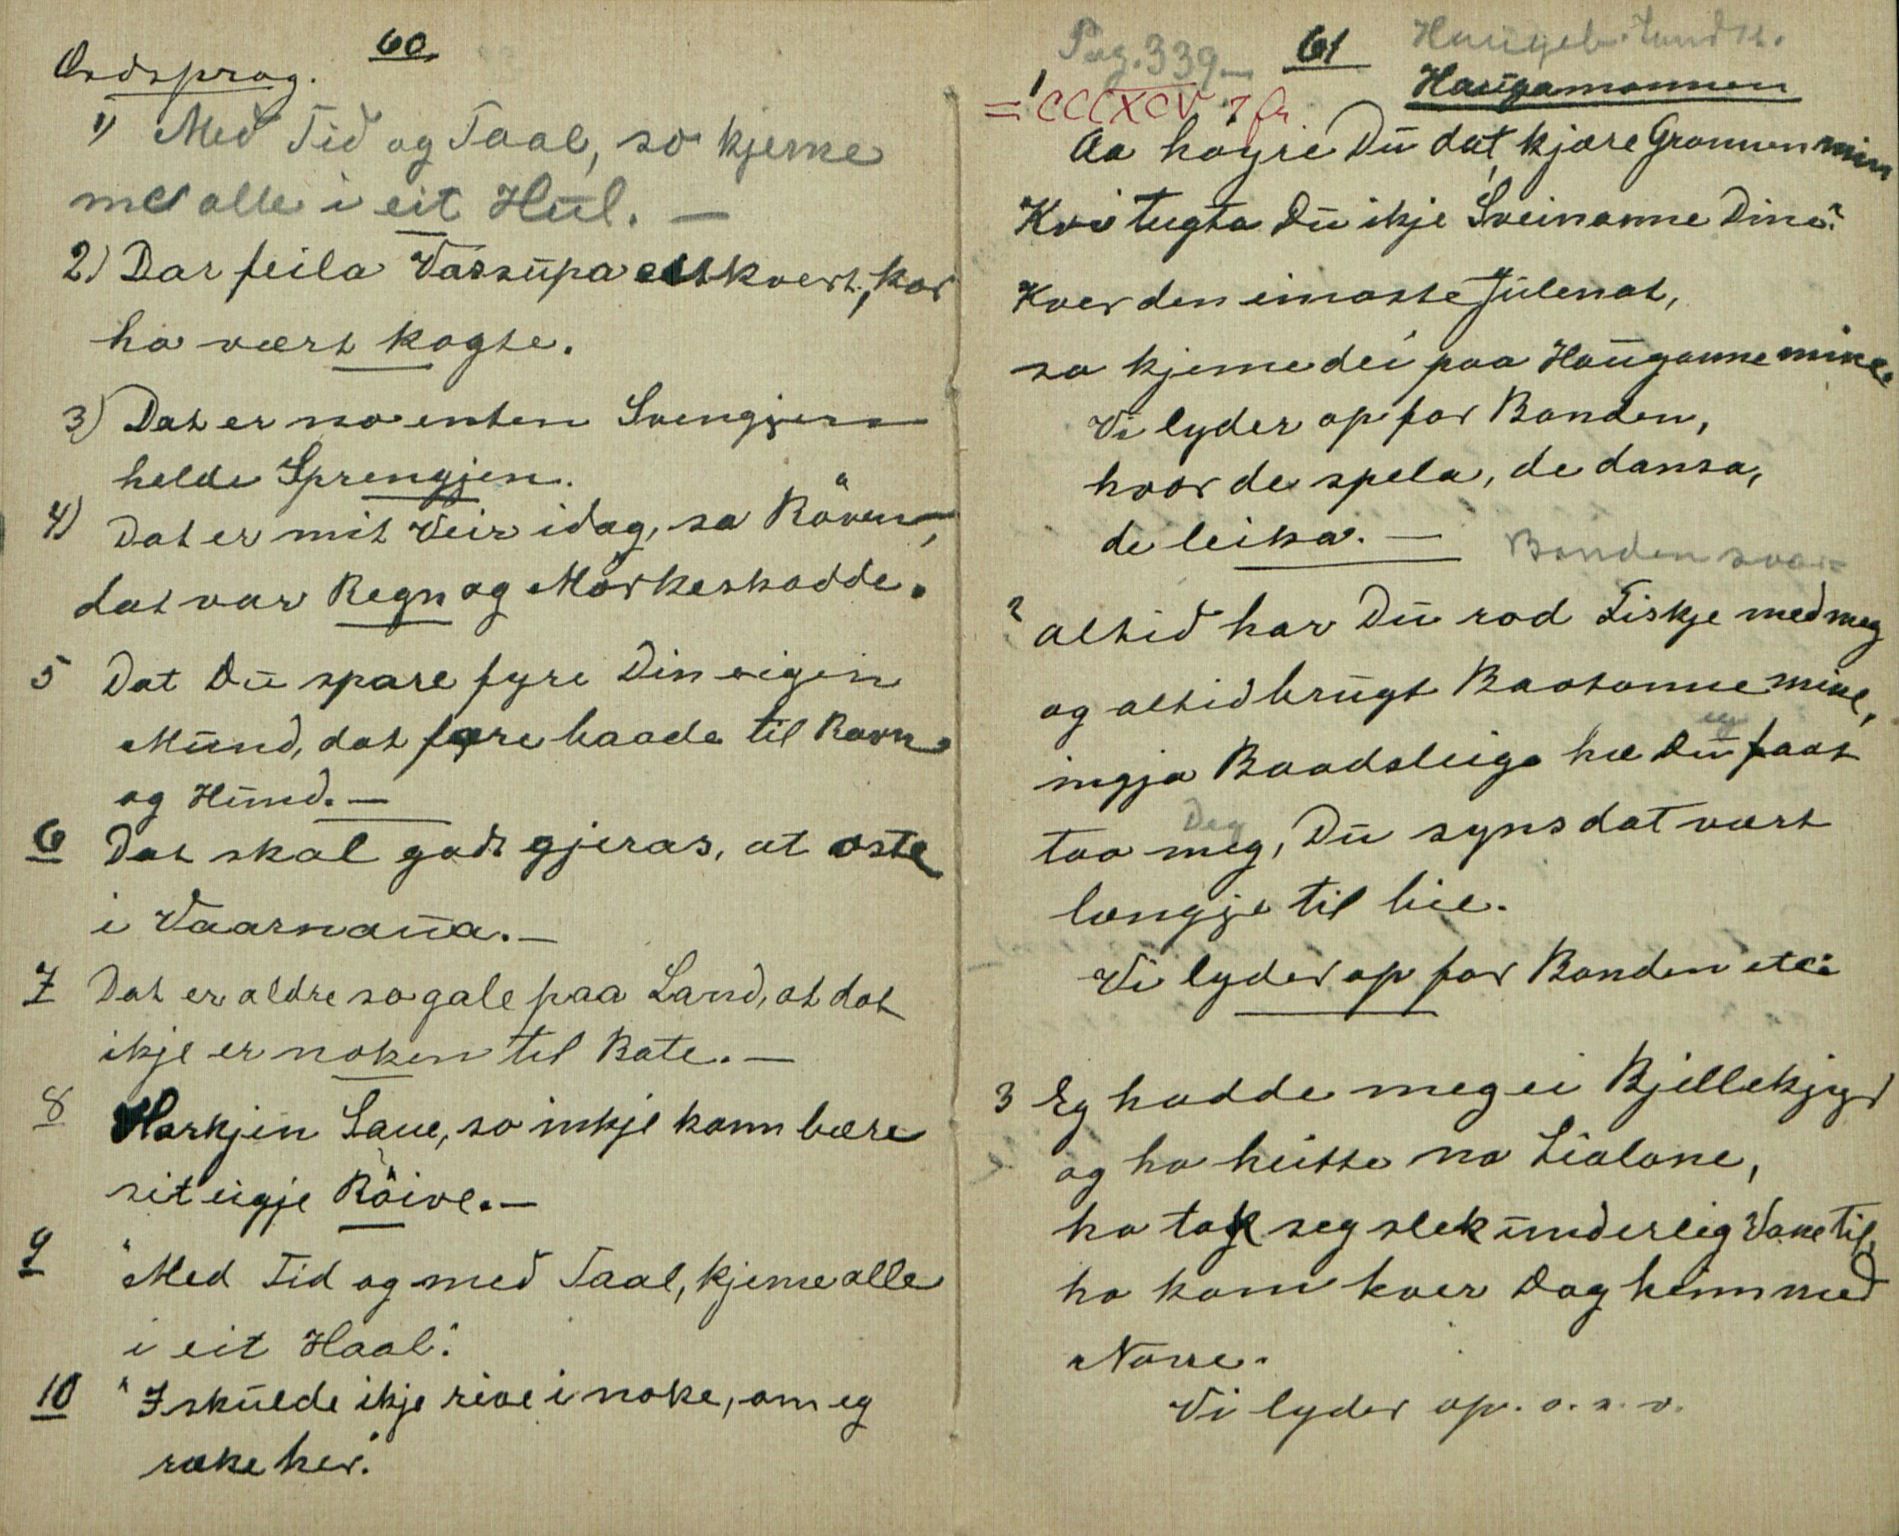 60
Ordsprog.
1) Med Tid og Taal, so kjeme
me alle i eit Hul. —
2) Dar feila Vassupa eitkvert, kor
ho vært kogte.
3) Dat er no enten Svengjen
helde Sprengjen.
4) Dat er mit Veir idag, sa Räven,
dat var Regn og Mörkeskodde.
5 Dat Du spare fyre Din eigin
Mund, dat fare baade til Ravn
og Hund. —
6 Dat skal godt gjeras, at oste
i Vaarnaua. —
7 Dat er aldre so gale paa Land, at dat
ikje er noken til Bate. —
8 Harkjin Saue, so inkje kann bære
sit eigje Röive. —
9 "Med Tid og med Taal, kjeme alle
i eit Haal".
10 "I skulde ikje rive i noke, om eg
rake her."
61
Pag. 339 —
= CCCXCV 7 fr
Haugamannen
1 Aa høyre Du dat, kjære Grannen min
Kvi tugta Du ikje Sveinanne Dine?
Kver den einaste Julenat,
so kjeme dei paa Hauganne mine.
Vi lyder op for Bonden,
hvor de spela, de dansa,
de leika. —
Bonden svar=
2 Altid har Du rod Fiskje med meg
og altid brugt Baatanne mine,
ingja Baadsleige hæ Du faat
eg
taa meg, Du syns dat vært
Deg
længje til bie.
Vi lyder op for Bonden etc.
3 Eg hadde meg ei Bjillekjyr
og ho heitte no Lialone,
ho tok seg slek underleg Vane til,
ho kom kver Dag heim med
None.
Vi lyder op. o. s. v.